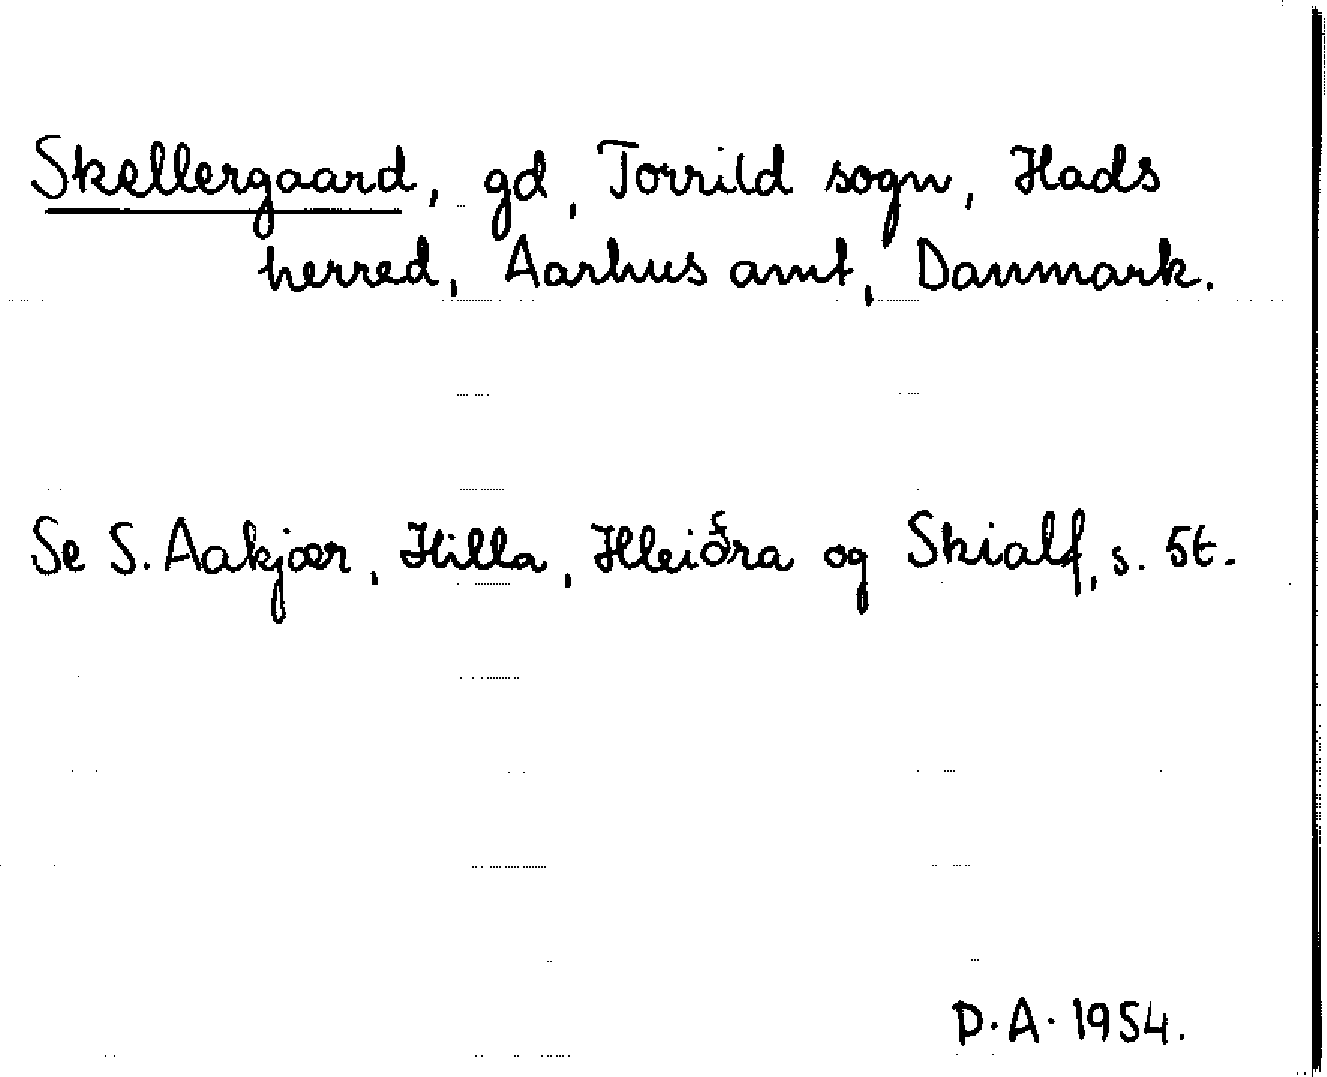 Skellergaard, gd, Torrild sogn, Hads
herred, Aarhus amt, Danmark.
Se S. Aakjær, Hilla, Hleiðra og Skialf, s. 5t.
P.A. 1954.